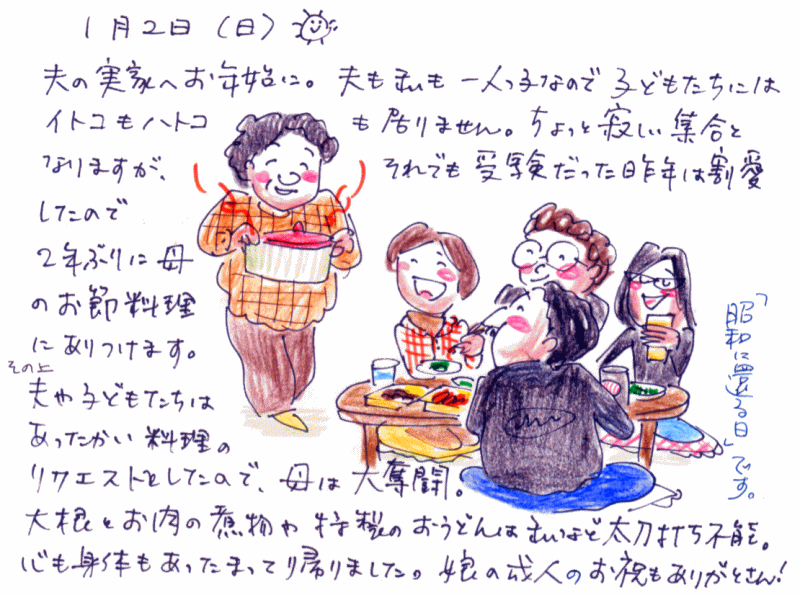 1月2日(日)
夫の実家へお年始に。夫も私も一人っ子なので子どもたちには
イトコもハトコも居りません。ちょっと寂しい集合と
なりますが、それでも受験だった昨年は割愛
したので
2年ぶりに母
のお節料理
にありつけます。
その上
夫や子どもたちは
あったかい料理の
リクエストをしたので、母は大奮闘。
大根とお肉の煮物や特製のおうどんは私など太刀打ち不能。
心も身体もあったまって帰りました。娘の成人のお祝もありがとさん!
「昭和に還る日」です。